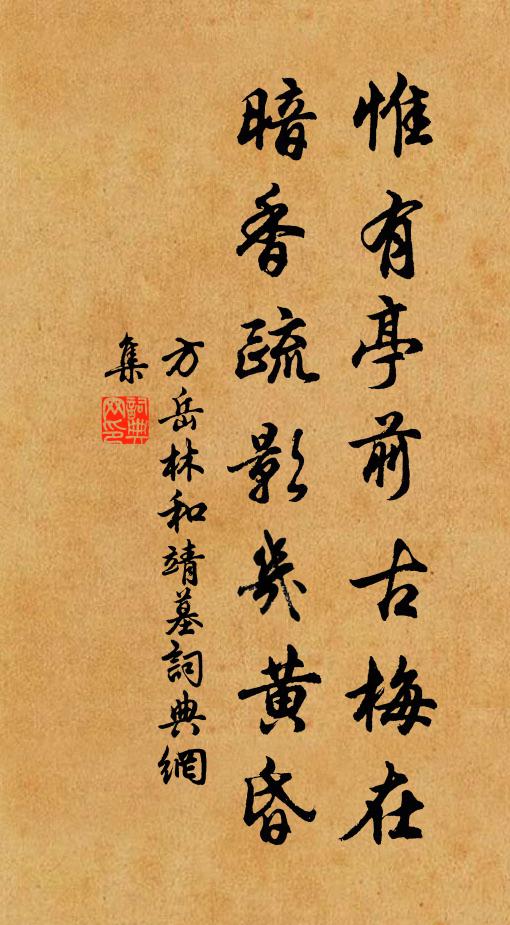 惟有亭前古梅在
暗香疏影幾黄昏
方岳林和靖墓詞典網
集
詞典网印